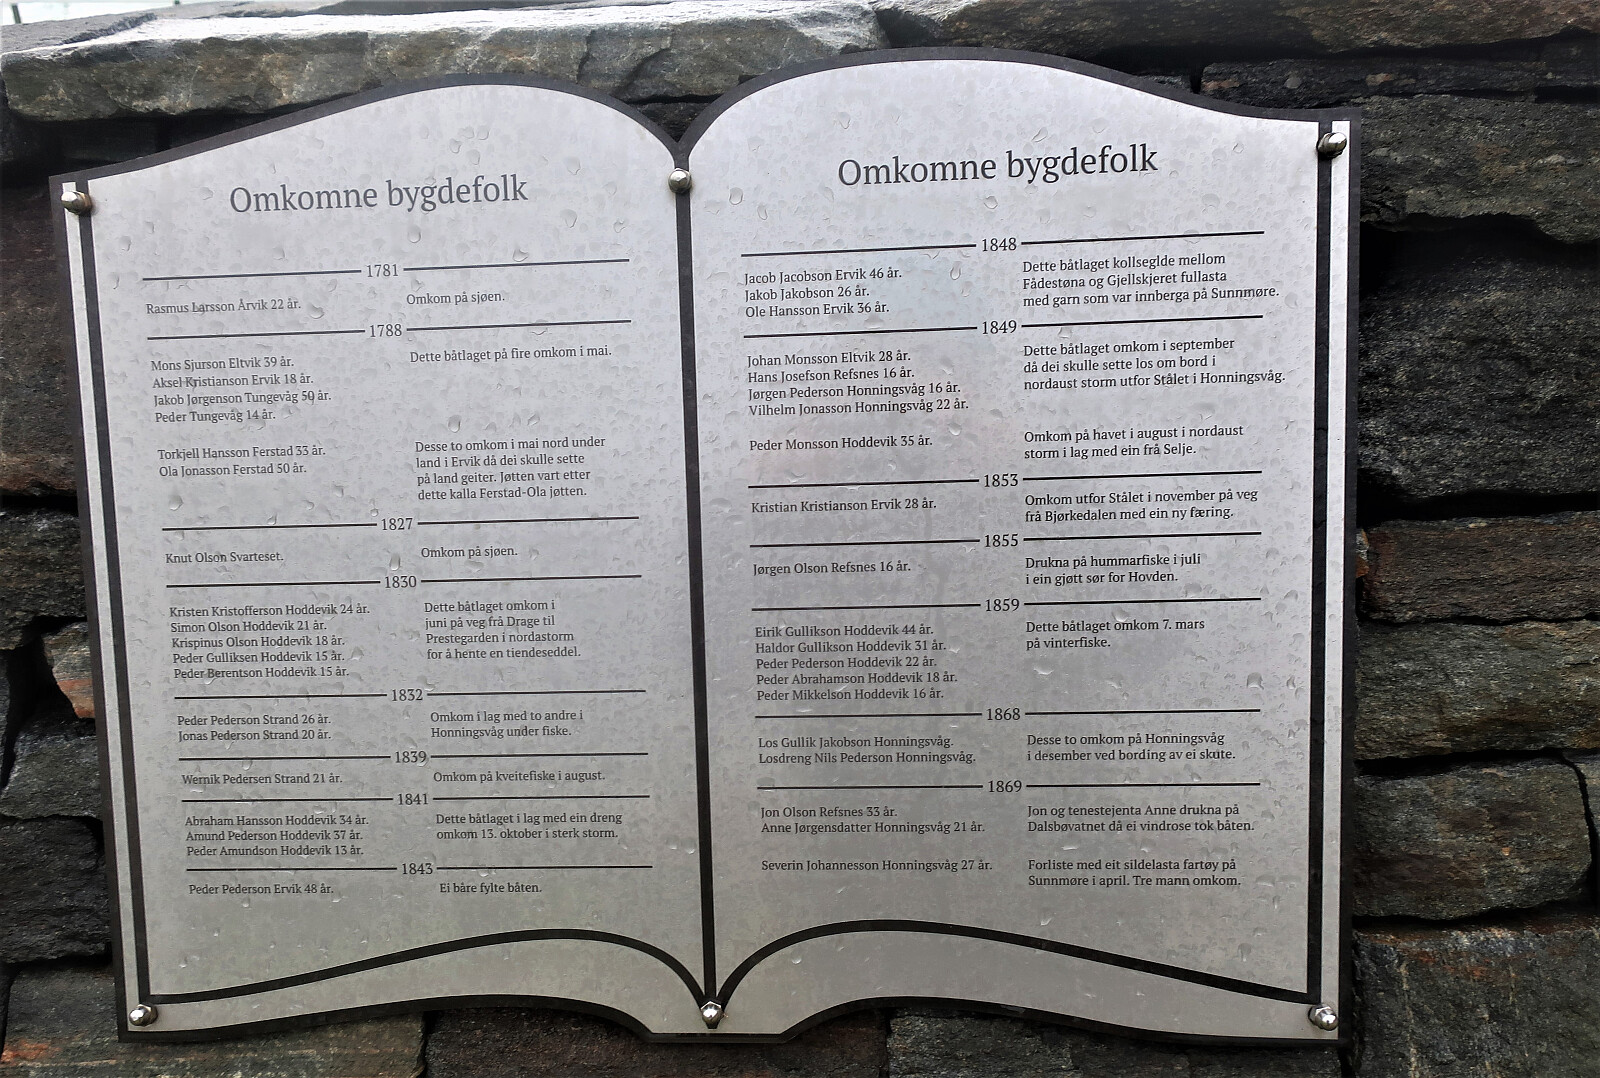 Omkomne bygdefolk
1781
Rasmus Larsson Årvik 22 år.
Omkom på sjøen.
1788
Mons Sjurson Eltvik 39 år.
Aksel Kristianson Ervik 18 år.
Jakob Jørgenson Tungevåg 50 år.
Peder Tungevåg 14 år.
Dette båtlaget på fire omkom i mai.
Torkjell Hansson Ferstad 33 år.
Ola Jonasson Ferstad 50 år.
Desse to omkom i mai nord under
land i Ervik då dei skulle sette
på land geiter. Jøtten vart etter
dette kalla Ferstad-Ola jøtten.
1827
Knut Olson Svarteset.
Omkom på sjøen.
1830
Kristen Kristofferson Hoddevik 24 år.
Simon Olson Hoddevik 21 år.
Krispinus Olson Hoddevik 18 år.
Peder Gulliksen Hoddevik 15 år.
Peder Berentson Hoddevik 15 år.
Dette båtlaget omkom i
juni på veg frå Drage til
Prestegarden i nordastorm
for å hente en tiendeseddel.
1832
Peder Pederson Strand 26 år.
Jonas Pederson Strand 20 år.
Omkom i lag med to andre i
Honningsvåg under fiske.
1839
Wernik Pedersen Strand 21 år.
Omkom på kveitefiske i august.
1841
Abraham Hansson Hoddevik 34 år.
Amund Pederson Hoddevik 37 år.
Peder Amundson Hoddevik 13 år.
Dette båtlaget i lag med ein dreng
omkom 13. oktober i sterk storm.
1843
Peder Pederson Ervik 48 år.
Ei båre fylte båten.
Omkomne bygdefolk
1848
Jacob Jacobson Ervik 46 år.
Jakob Jakobson 26 år.
Ole Hansson Ervik 36 år.
Dette båtlaget kollseglde mellom
Fådestøna og Gjellskjeret fullasta
med garn som var innberga på Sunnmøre.
1849
Johan Monsson Eltvik 28 år.
Hans Josefson Refsnes 16 år.
Jørgen Pederson Honningsvåg 16 år.
Vilhelm Jonasson Honningsvåg 22 år.
Dette båtlaget omkom i september
då dei skulle sette los om bord i
nordaust storm utfor Stålet i Honningsvåg.
Peder Monsson Hoddevik 35 år.
Omkom på havet i august i nordaust
storm i lag med ein frå Selje.
1853
Kristian Kristianson Ervik 28 år.
Omkom utfor Stålet i november på veg
frå Bjørkedalen med ein ny færing.
1855
Jørgen Olson Refsnes 16 år.
Drukna på hummarfiske i juli
i ein gjøtt sør for Hovden.
1859
Eirik Gullikson Hoddevik 44 år.
Haldor Gullikson Hoddevik 31 år.
Peder Pederson Hoddevik 22 år.
Peder Abrahamson Hoddevik 18 år.
Peder Mikkelson Hoddevik 16 år.
Dette båtlaget omkom 7. mars
på vinterfiske.
1868
Los Gullik Jakobson Honningsvåg.
Losdreng Nils Pederson Honningsvåg.
Desse to omkom på Honningsvåg
i desember ved bording av ei skute.
1869
Jon Olson Refsnes 33 år.
Anne Jørgensdatter Honningsvåg 21 år.
Jon og tenestejenta Anne drukna på
Dalsbøvatnet då ei vindrose tok båten.
Severin Johannesson Honningsvåg 27 år.
Forliste med eit sildelasta fartøy på
Sunnmøre i april. Tre mann omkom.